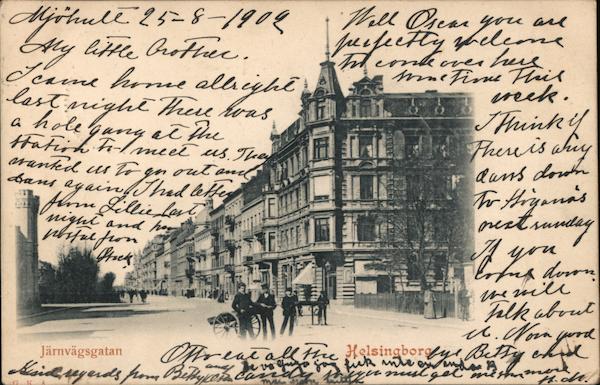 Mjöhult 25-8-1902
My little brother.
I came home allright
last night there was
a hole gang at the
station to meet us. They
wanted us to go out and
dans again. I had letter
from Lillie last
night and
postal from
Well Oscar you are
perfectly welcome
to come over here
some time this
week.
I think if
there is any
dans down
to Höganäs
next sunday
if you
come down
we will
talk about
it. Now good
bye Betty and
Järnvägsgatan
Helsingborg
to eat all the
kind regards from Betty
you must get one more